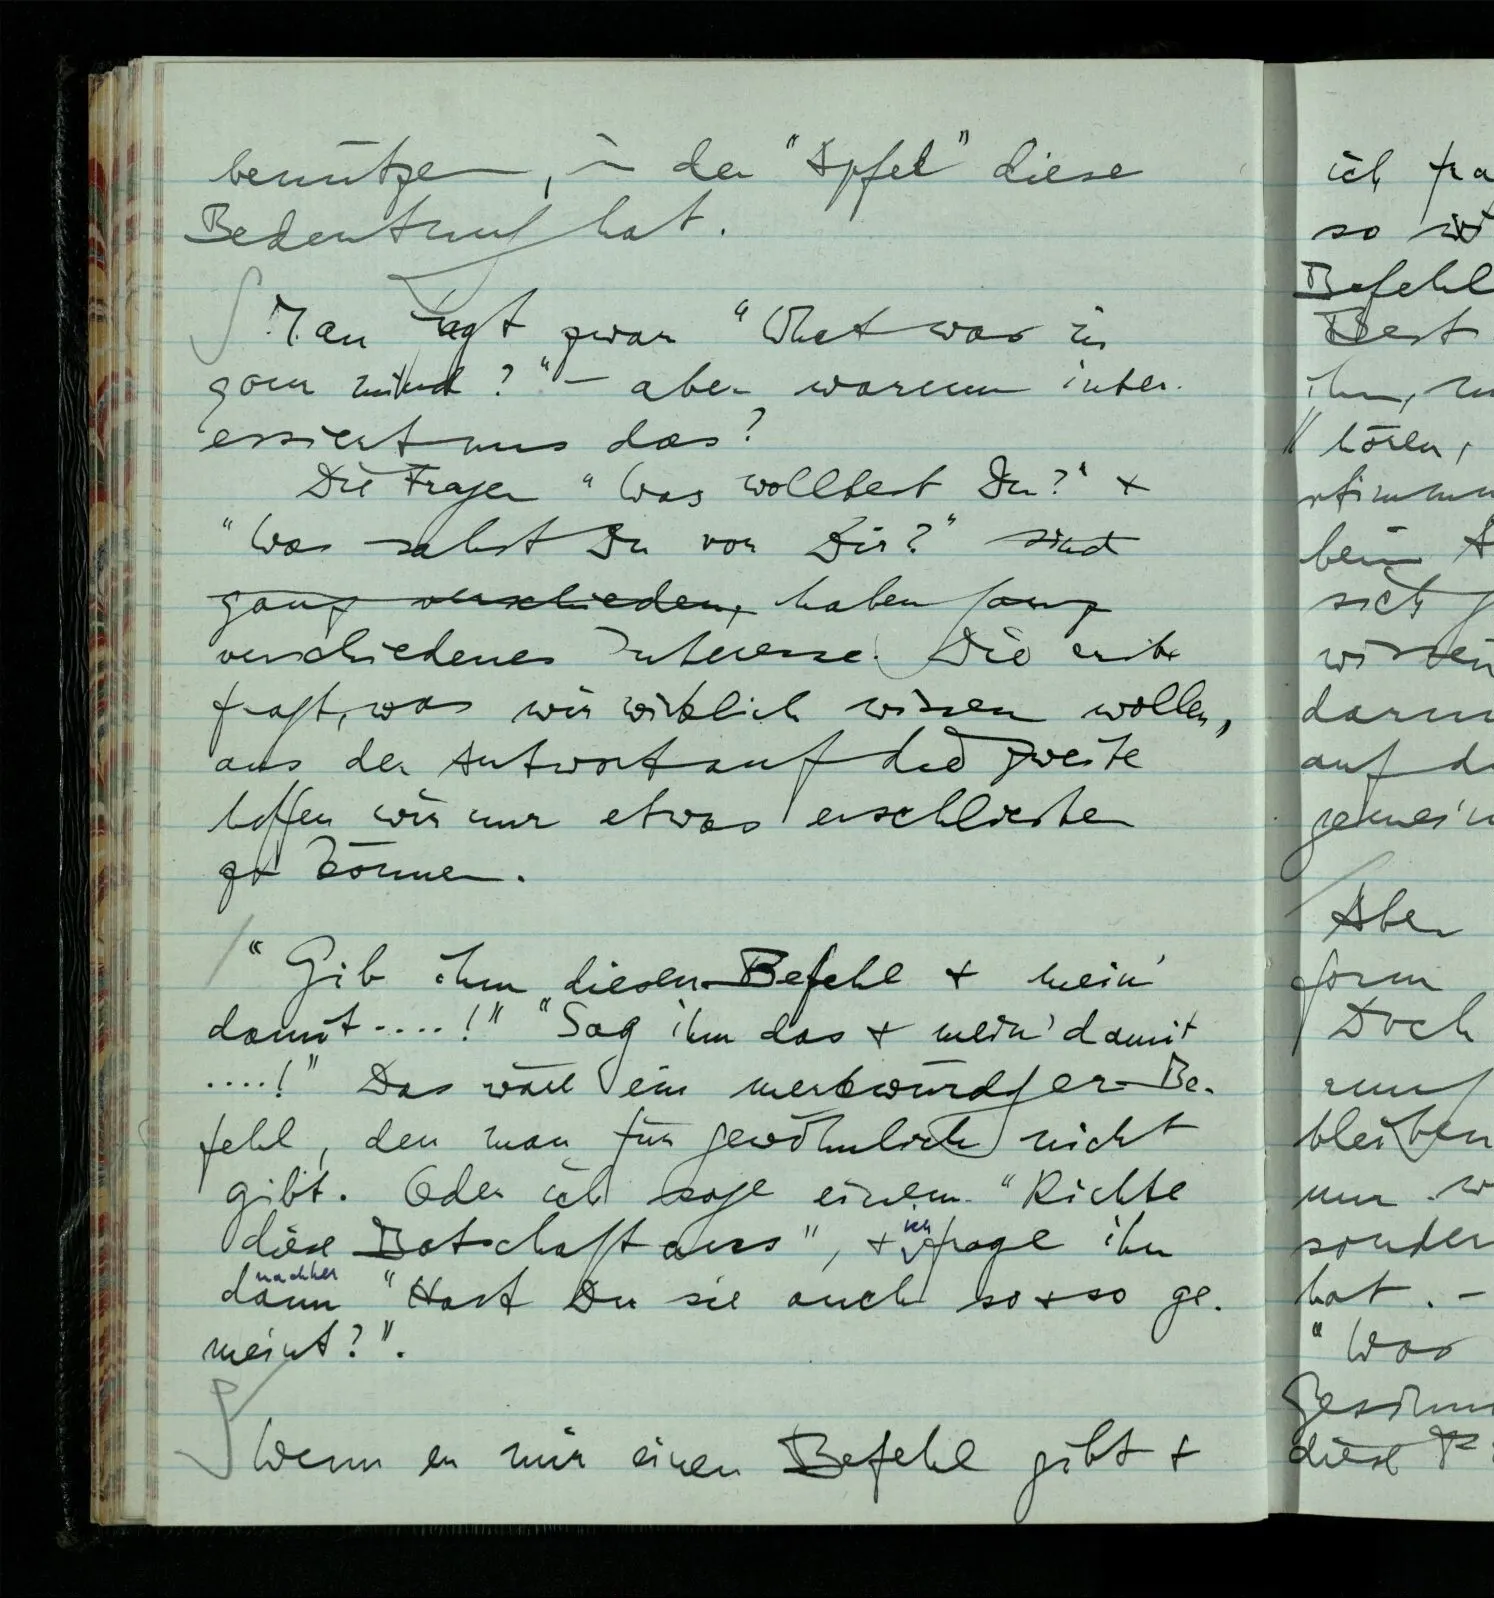 benützen, in der "Apfel" diese
Bedeutung hat.
∫ Man sagt zwar "What was in
your mind?" – aber warum inter-
essiert uns das?
Die Fragen "Was wolltest Du?" +
"Was sahst Du vor Dir?" sind
ganz verschieden, haben ganz
verschiedenes Interesse. Die erste
fragt, was wir wirklich wissen wollen,
aus der Antwort auf die zweite
hoffen wir nur etwas erschließen
zu können.
/ "Gib ihm diesen Befehl + mein'
damit ....!" "Sag ihm das + mein' damit
....!" Das wäre ein merkwürdiger Be-
fehl, den man für gewöhnlich nicht
gibt. Oder ich sage einem "Richte
diese Botschaft aus", + ich frage ihn
dann nachher "Hast Du sie auch so + so ge-
meint?".
∫ Wenn er mir einen Befehl gibt +
ich
so
Befehl
ihn,
hören,
beim
sich
auf
Aber
form
Doch
bleiben
nur
hat. –
"Was
diese